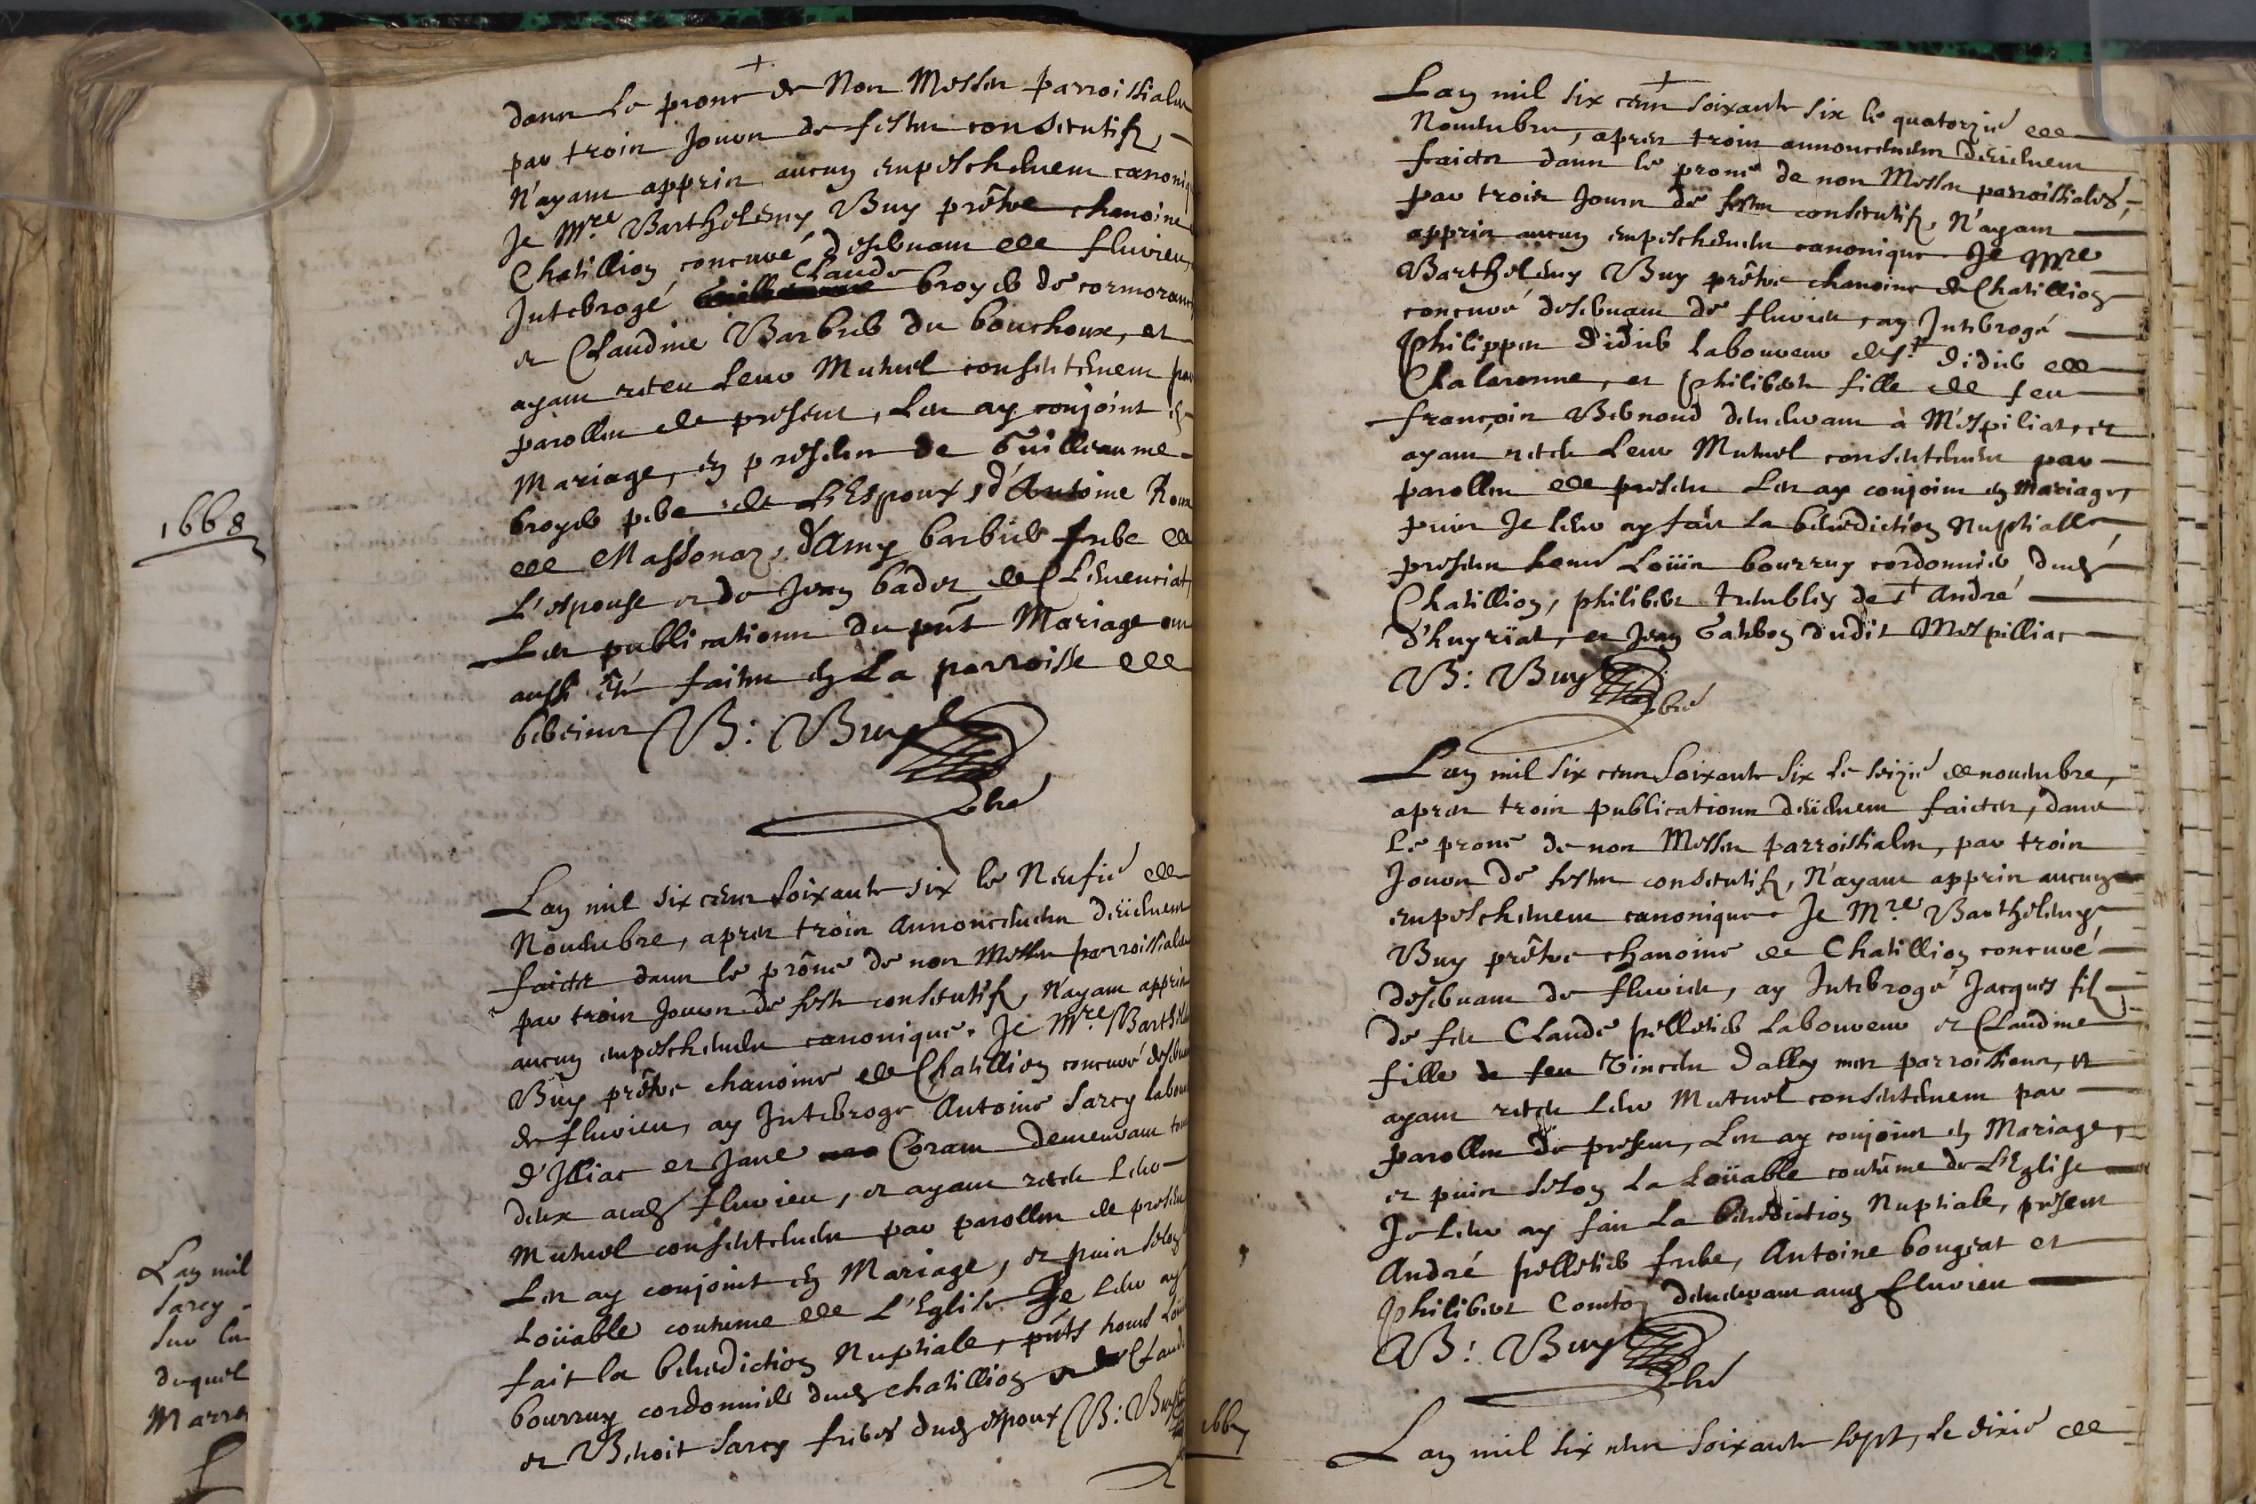 dans le prone de Nos Messes parroissiales
par trois Jours de festes consecutifz,
N'ayant appris aucun empeschement canoniq
Je Mre Barthelemy Buy prêtre chanoine
Chatillion concuré desservant de flurieu,
Interogé Claude broyer de cormoranc
et Claudine Barbier du bouchoux, et
ayant receu Leur Mutuel consentement par
parolles de present, Les ay conjoint en
Mariage, en presence de Guilleaume
broyer pere de L'Espoux, d'Antoine Roux
de Massonaz, d'Amy barbier frere de
L'espouse et de Jean bader de
Les publications du pnt Mariage ont
aussi été faites en La parroisse de
B: Buy
pbre
Lan mil six cens soixante six le Neufie de
Novembre, apres trois Annoncements deüement
faictes dans le prône de nos Messes parroissiales
par trois Jours de feste consecutifz, N'ayant appris
aucun empeschement canonique. Je Mre Barthele
Buy prêtre chanoine de Chatillion concuré desserv
de flurieu, ay Interogé Antoine Sarcy labour
d'Illiac et Jane Coram demeurant tous
deux audt fluvieu, et ayant receu Leur
Mutuel consentement par parolles de present
Les ay conjoint en Mariage, et puis selon
Loüable coutume de L'Eglise Je Leur ay
fait la benediction Nuptiale, pnts hont Loüis
bourruy cordonnier dudt chatillion et de Claude
et Benoit Sarcy freres dudt espoux B: Buy
1668
Lan mil
Sarcy
sur la
duquel
Marra
Lan mil six cens soixante six le quatorzie de
Novembre, apres trois annoncements deüement
faictes dans le prone de nos Messes parroissiales,
par trois Jours de festes consecutifz, N'ayant
appris aucun empeschement canonique Je Mre
Barthelemy Buy prêtre chanoine de Chatillion
concuré desservant de fluvieu, ay Interogé
Philippes Didier Laboureur de St Didier de
Chalaronne, et Philiberte fille de feu
françois Bernoud demeurant àMéspiliat, et
ayant receu Leur Mutuel consentement par
parolles de present Les ay conjoint en Mariage,
puis Je leur ay fait La benediction Nuptialle,
present hont Loüis bourruy cordonnier dudt
Chatillion, philibert trembley de St André
d'huyrïat, et Jean Gabbon dudit Mespilliac
B: Buy
pbre
Lan mil six cens soixante six Le seizie de novembre,
apres trois publications deüement faictes, dans
Le prone de nos Messes parroissiales, par trois
Jours de festes consecutifz, N'ayant appris aucun
empeschement canonique. Je Mre Barthelemy
Buy prêtre chanoine de Chatillion concuré
desservant de fluvieu, ay Interogé Jacques filz
de feu Claude pelletier Laboureur et Claudine
fille de feu Vincent Dalley mes parroissiens, et
ayant receu Leur Mutuel consentement par
parolles de present, Les ay conjoint en Mariage,
et puis selon La Loüable coutûme de L'Eglise
Je Leur ay fait La benediction Nuptiale, present
André pelletier frere, Antoine bougeat et
Philibert Comton demeurant audt fluvieu
B: Buy
pbre
1667
Lan mil six cens soixante sept, Le dixie de